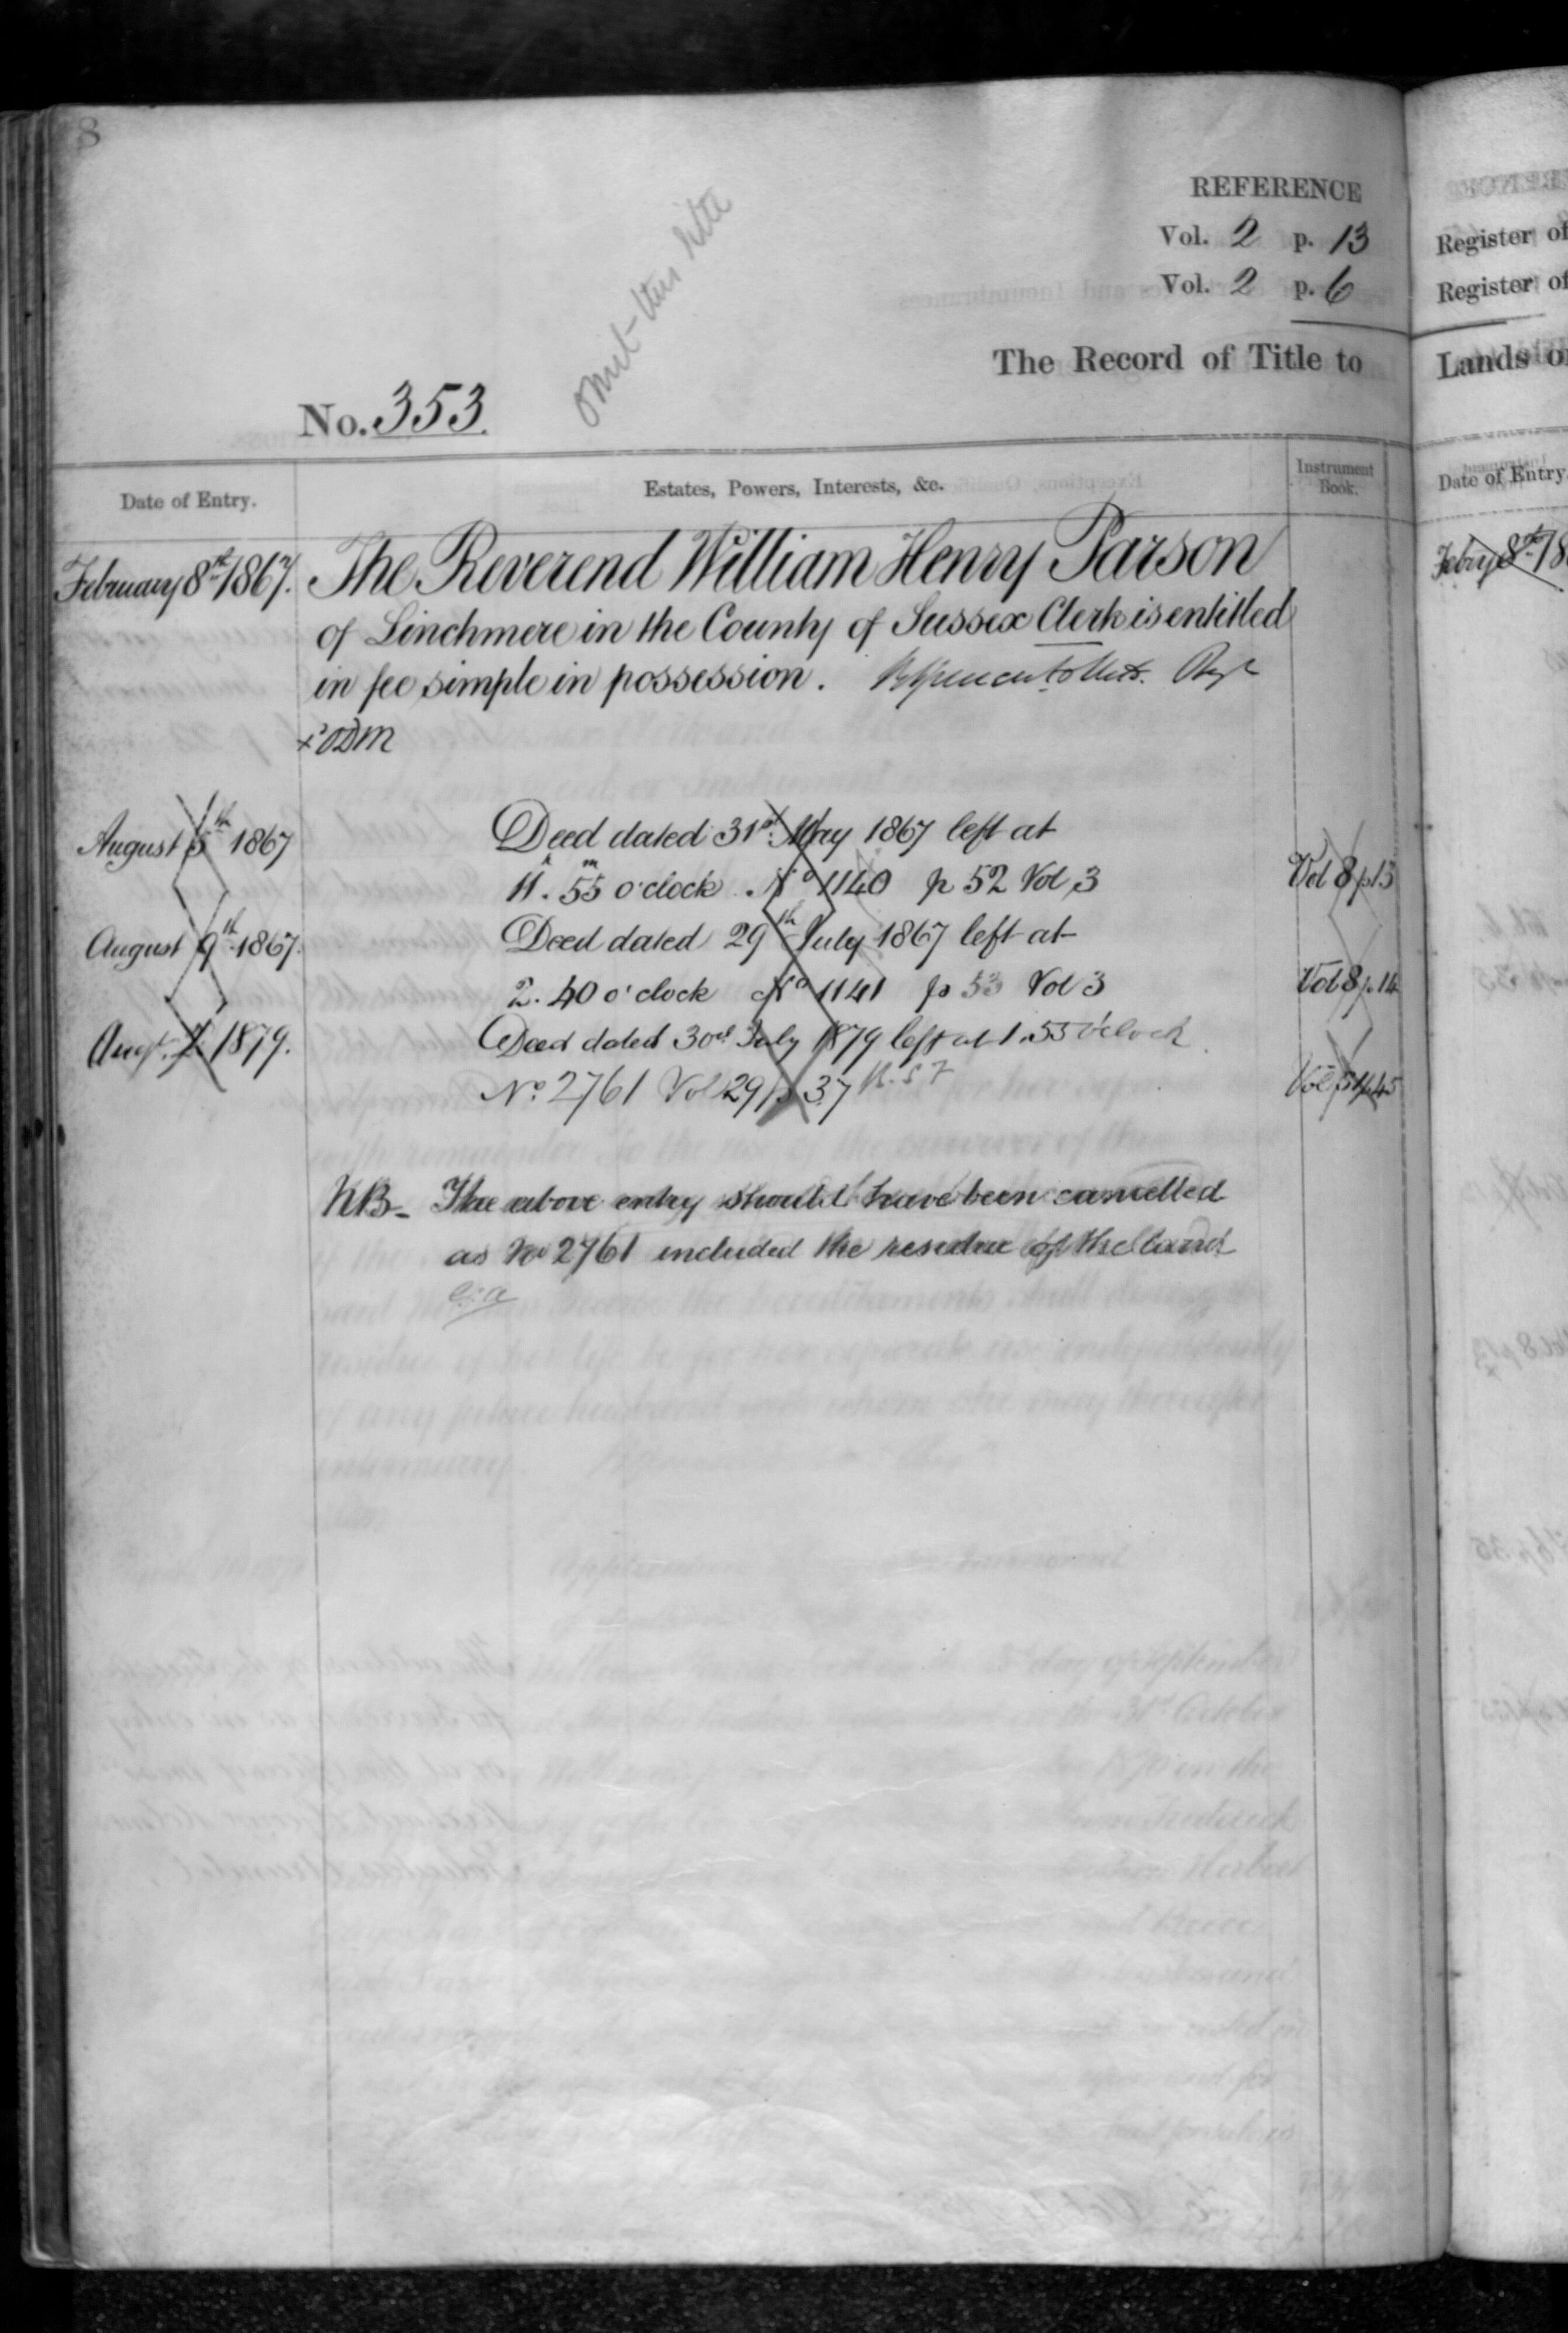 8
REFERENCE
Vol. 2 p. 13
Vol. 2 p. 6
The Record of Title to
No. 353.
Date of Entry.
Estates, Powers, Interests, &c.
Instrument
Book.
February 8th 1867. The Reverend William Henry Parson
of Linchmere in the County of Sussex Clerk is entitled
in fee simple in possession.
August 5th 1867 Deed dated 31st May 1867 left at
11h. 55m o'clock No 1140 p 52 Vol 3 Vol 8 p 13
August 9th 1867. Deed dated 29th July 1867 left at
2. 40 o'clock No 1141 p 53 Vol 3 Vol 8 p. 14
1879. Deed dated 30th July 1879 left at 1.55 o'clock
No 2761 Vol 29 p 37 Vol 51 p 45
NB- The above entry should have been cancelled
as No 2761 included the residue of the land
Register of
Register of
Lands o
Date of Entry.
Febry 8th 18